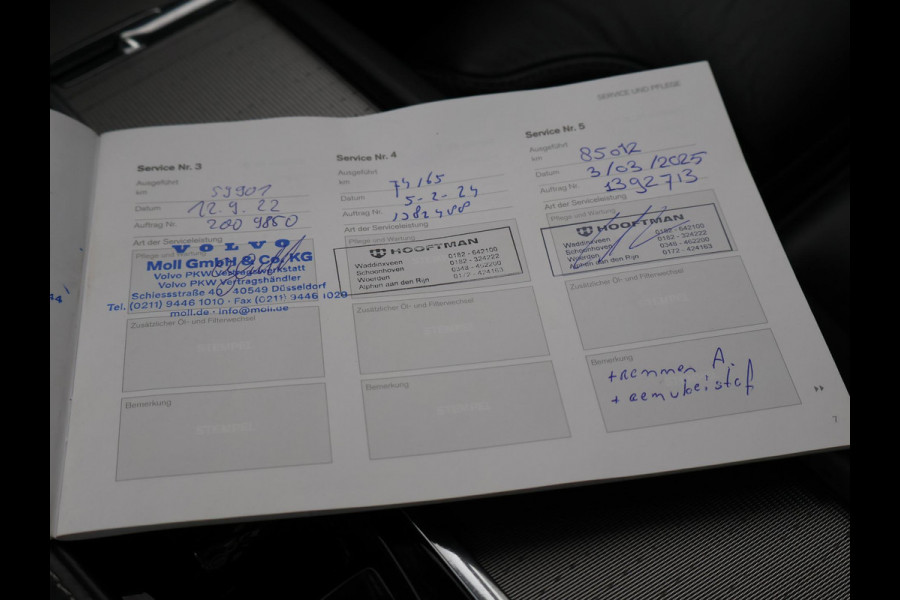 SERVICE UND PFLEGE
Service Nr. 3
Ausgeführt
km 59901
Datum 12.9.22
Auftrag Nr. 200 9850
Art der Serviceleistung
Pflege und Wartung
VOLVO
Moll GmbH & Co. KG
Volvo PKW Vertragswerkstatt
Volvo PKW Vertragshändler
Schiessstraße 40 / 40549 Düsseldorf
Tel. (0211) 9446 1010 · Fax (0211) 9446 1020
moll.de · info@moll.de
Zusätzlicher Öl- und Filterwechsel
STEMPEL
Bemerkung
STEMPEL
Service Nr. 4
Ausgeführt
km 74165
Datum 5-2-24
Auftrag Nr. 1382488
Art der Serviceleistung
Pflege und Wartung
HOOFTMAN
Waddinxveen 0182 - 642100
Schoonhoven 0182 - 324222
Woerden 0348 - 462200
Alphen aan den Rijn 0172 - 424163
Zusätzlicher Öl- und Filterwechsel
STEMPEL
Bemerkung
STEMPEL
Service Nr. 5
Ausgeführt
km 85012
Datum 3/03/2025
Auftrag Nr. 1392713
Art der Serviceleistung
Pflege und Wartung
HOOFTMAN
Waddinxveen 0182 - 642100
Schoonhoven 0182 - 324222
Woerden 0348 - 462200
Alphen aan den Rijn 0172 - 424163
Zusätzlicher Öl- und Filterwechsel
Bemerkung
+remmen A.
+remvloeistof
7